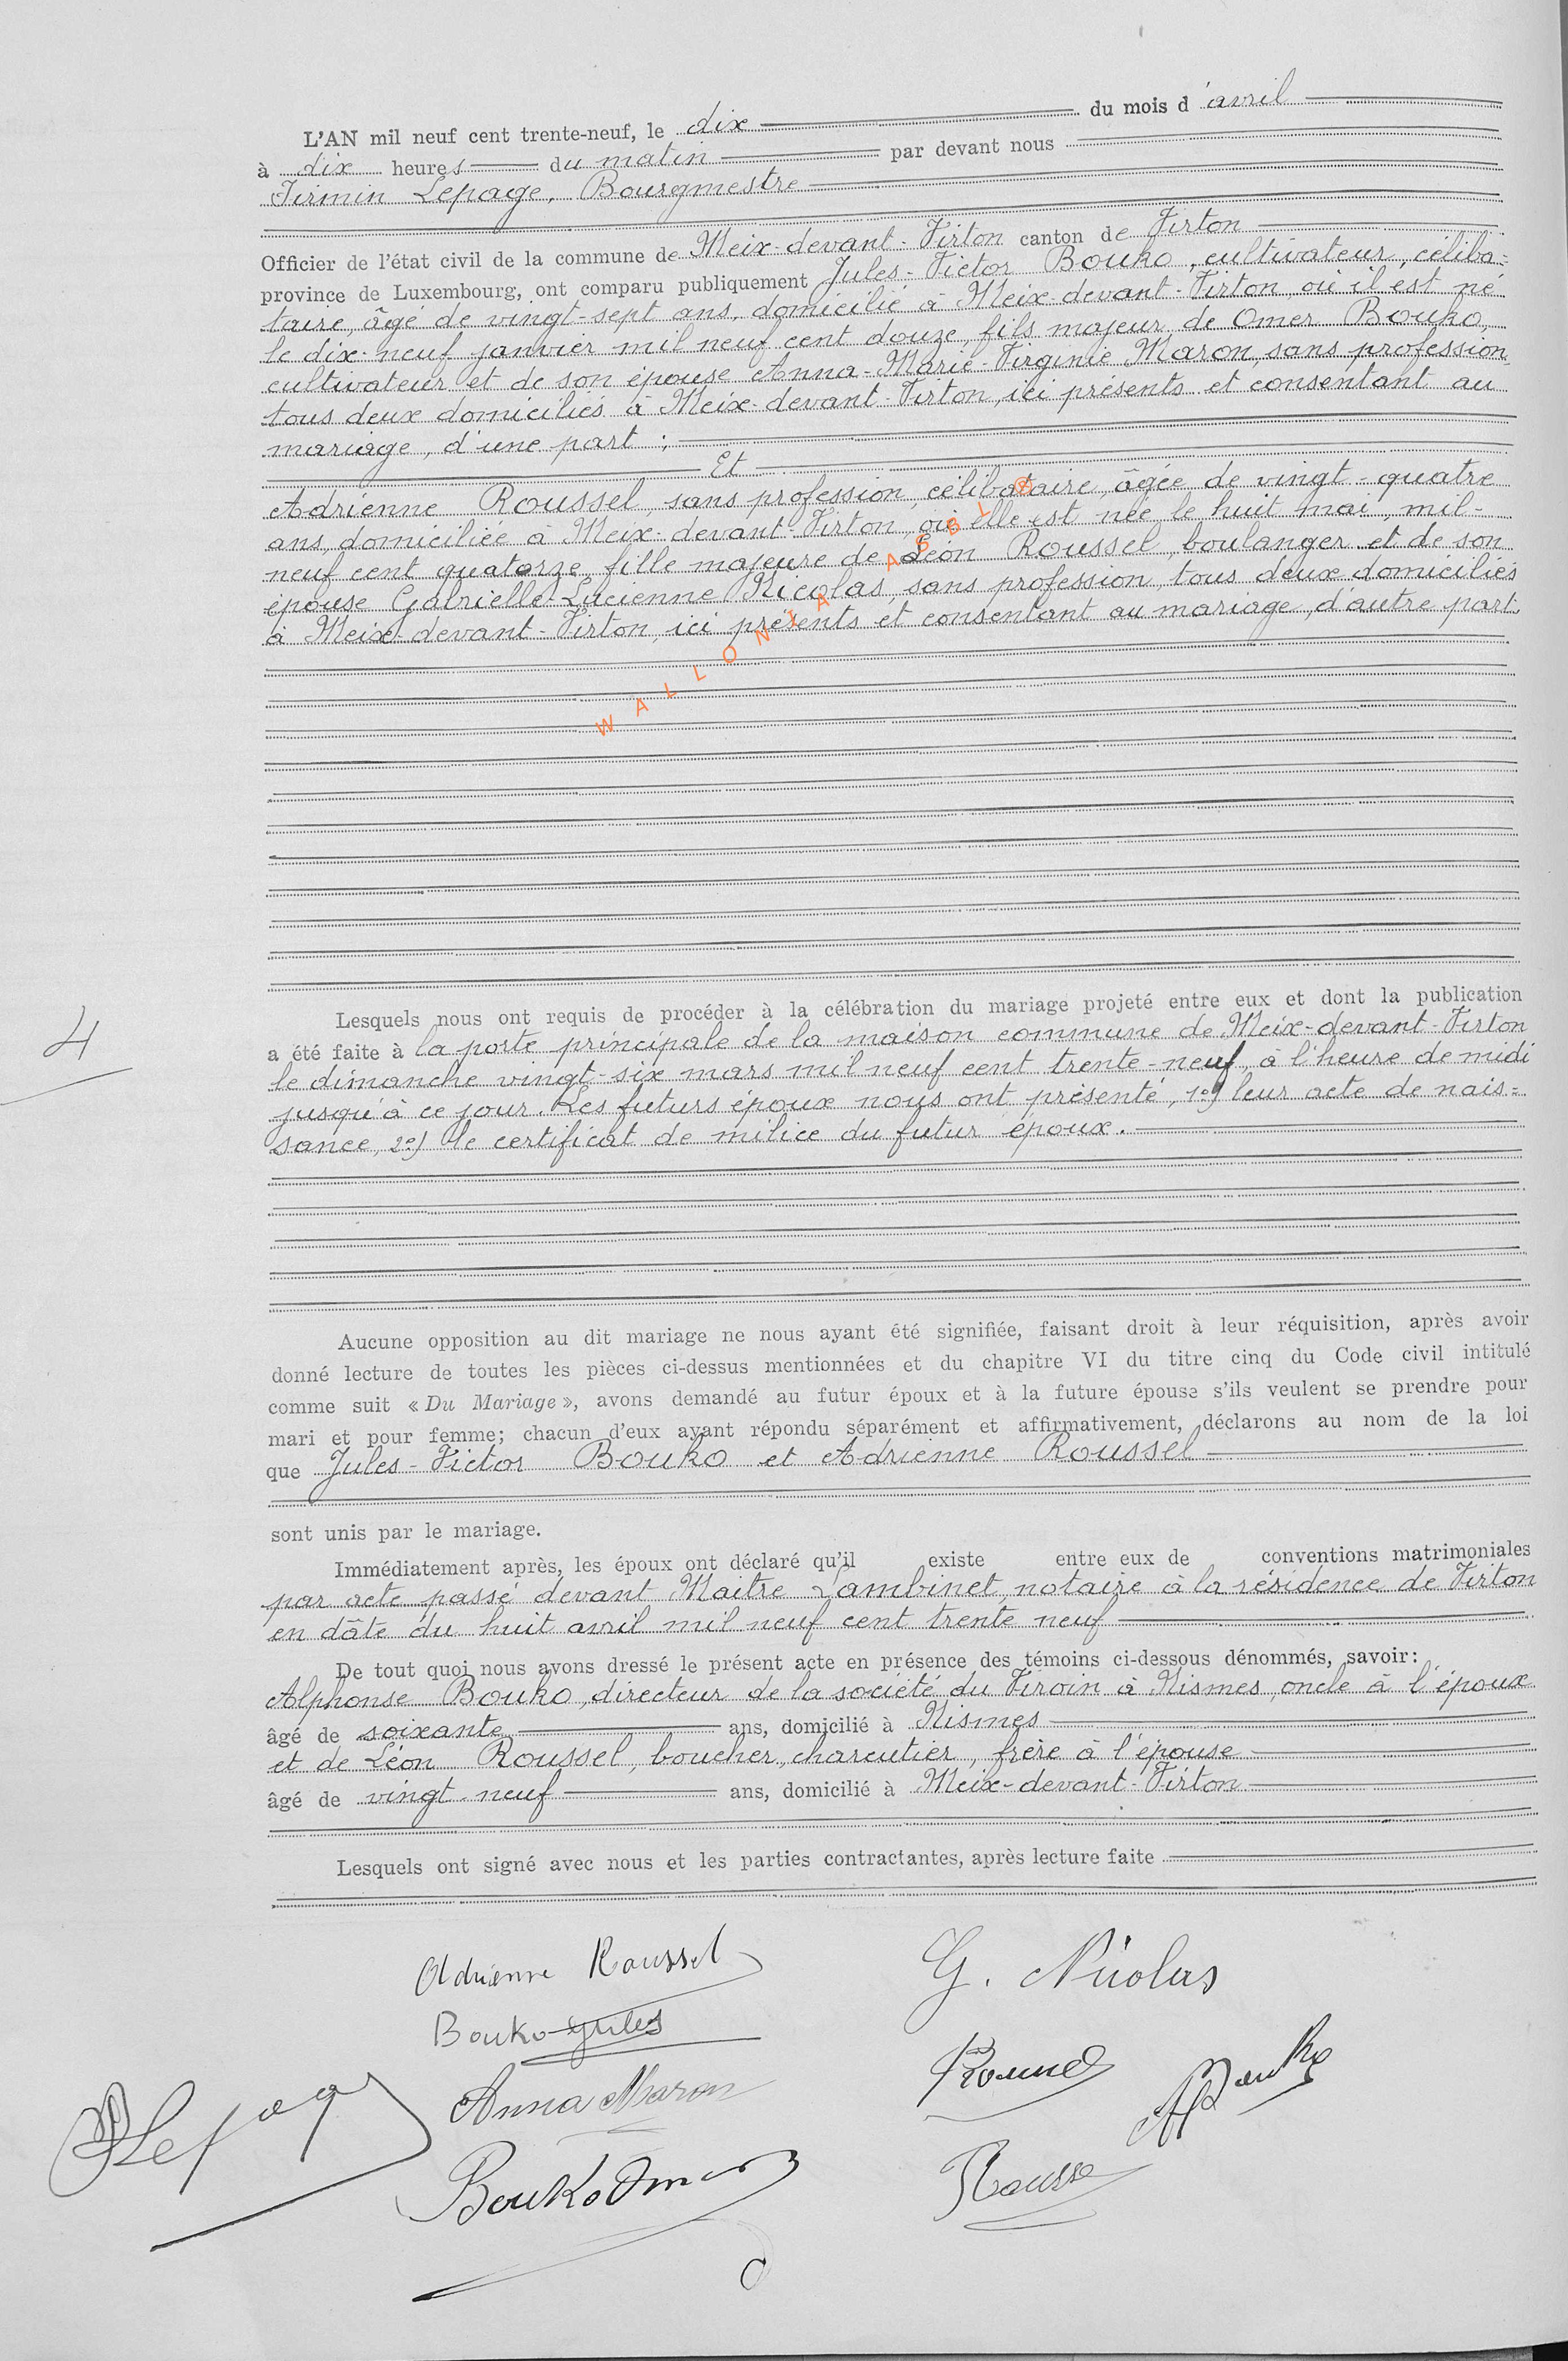 L'AN mil neuf cent trente-neuf, le dix du mois d'avril
à dix heures du matin par devant nous
Firmin Lepage, Bourgmestre
Officier de l'état civil de la commune de Meix-devant-Virton canton de Virton
province de Luxembourg, ont comparu publiquement Jules-Victor Bouko, cultivateur, céliba=
taire, âgé de vingt-sept ans, domicilié à Meix-devant-Virton, où il est né
le dix-neuf janvier mil neuf cent douze, fils majeur de Omer Bouko,
cultivateur et de son épouse Anna-Marie-Virginie Maron, sans profession
tous deux domiciliés à Meix-devant-Virton, ici présents et consentant au
mariage, d'une part ;
Et
Adrienne Roussel, sans profession, célibataire, âgée de vingt-quatre
ans, domiciliée à Meix-devant-Virton, où elle est née, le huit mai, mil-
neuf cent quatorze, fille majeure de Léon Roussel, boulanger et de son
épouse Gabrielle-Lucienne Nicolas, sans profession, tous deux domiciliés
à Meix-devant-Virton, ici présents et consentant au mariage, d'autre part.
WALLONIA ASBL ®
Lesquels nous ont requis de procéder à la célébration du mariage projeté entre eux et dont la publication
4
a été faite à la porte principale de la maison commune de Meix-devant-Virton
le dimanche vingt-six mars mil neuf cent trente-neuf, à l'heure de midi
jusqu'à ce jour. Les futurs époux nous ont présenté, 1º) leur acte de nais=
sance, 2º) le certificat de milice du futur époux.
Aucune opposition au dit mariage ne nous ayant été signifiée, faisant droit à leur réquisition, après avoir
donné lecture de toutes les pièces ci-dessus mentionnées et du chapitre VI du titre cinq du Code civil intitulé
comme suit « Du Mariage », avons demandé au futur époux et à la future épouse s'ils veulent se prendre pour
mari et pour femme; chacun d'eux ayant répondu séparément et affirmativement, déclarons au nom de la loi
que Jules-Victor Bouko et Adrienne Roussel
sont unis par le mariage.
Immédiatement après, les époux ont déclaré qu'il existe entre eux de conventions matrimoniales
par acte passé devant Maitre Lambinet, notaire à la résidence de Virton
en dâte du huit avril mil neuf cent trente neuf
De tout quoi nous avons dressé le présent acte en présence des témoins ci-dessous dénommés, savoir:
Alphonse Bouko, directeur de la société du Viroin à Nismes, oncle à l'époux
âgé de soixante ans, domicilié à Nismes
et de Léon Roussel, boucher, charcutier, frère à l'épouse
âgé de vingt-neuf ans, domicilié à Meix-devant-Virton
Lesquels ont signé avec nous et les parties contractantes, après lecture faite
Adrienne Roussel
G. Nicolas
Bouko Jules
Anna Maron
Lepage
Bouko Omer